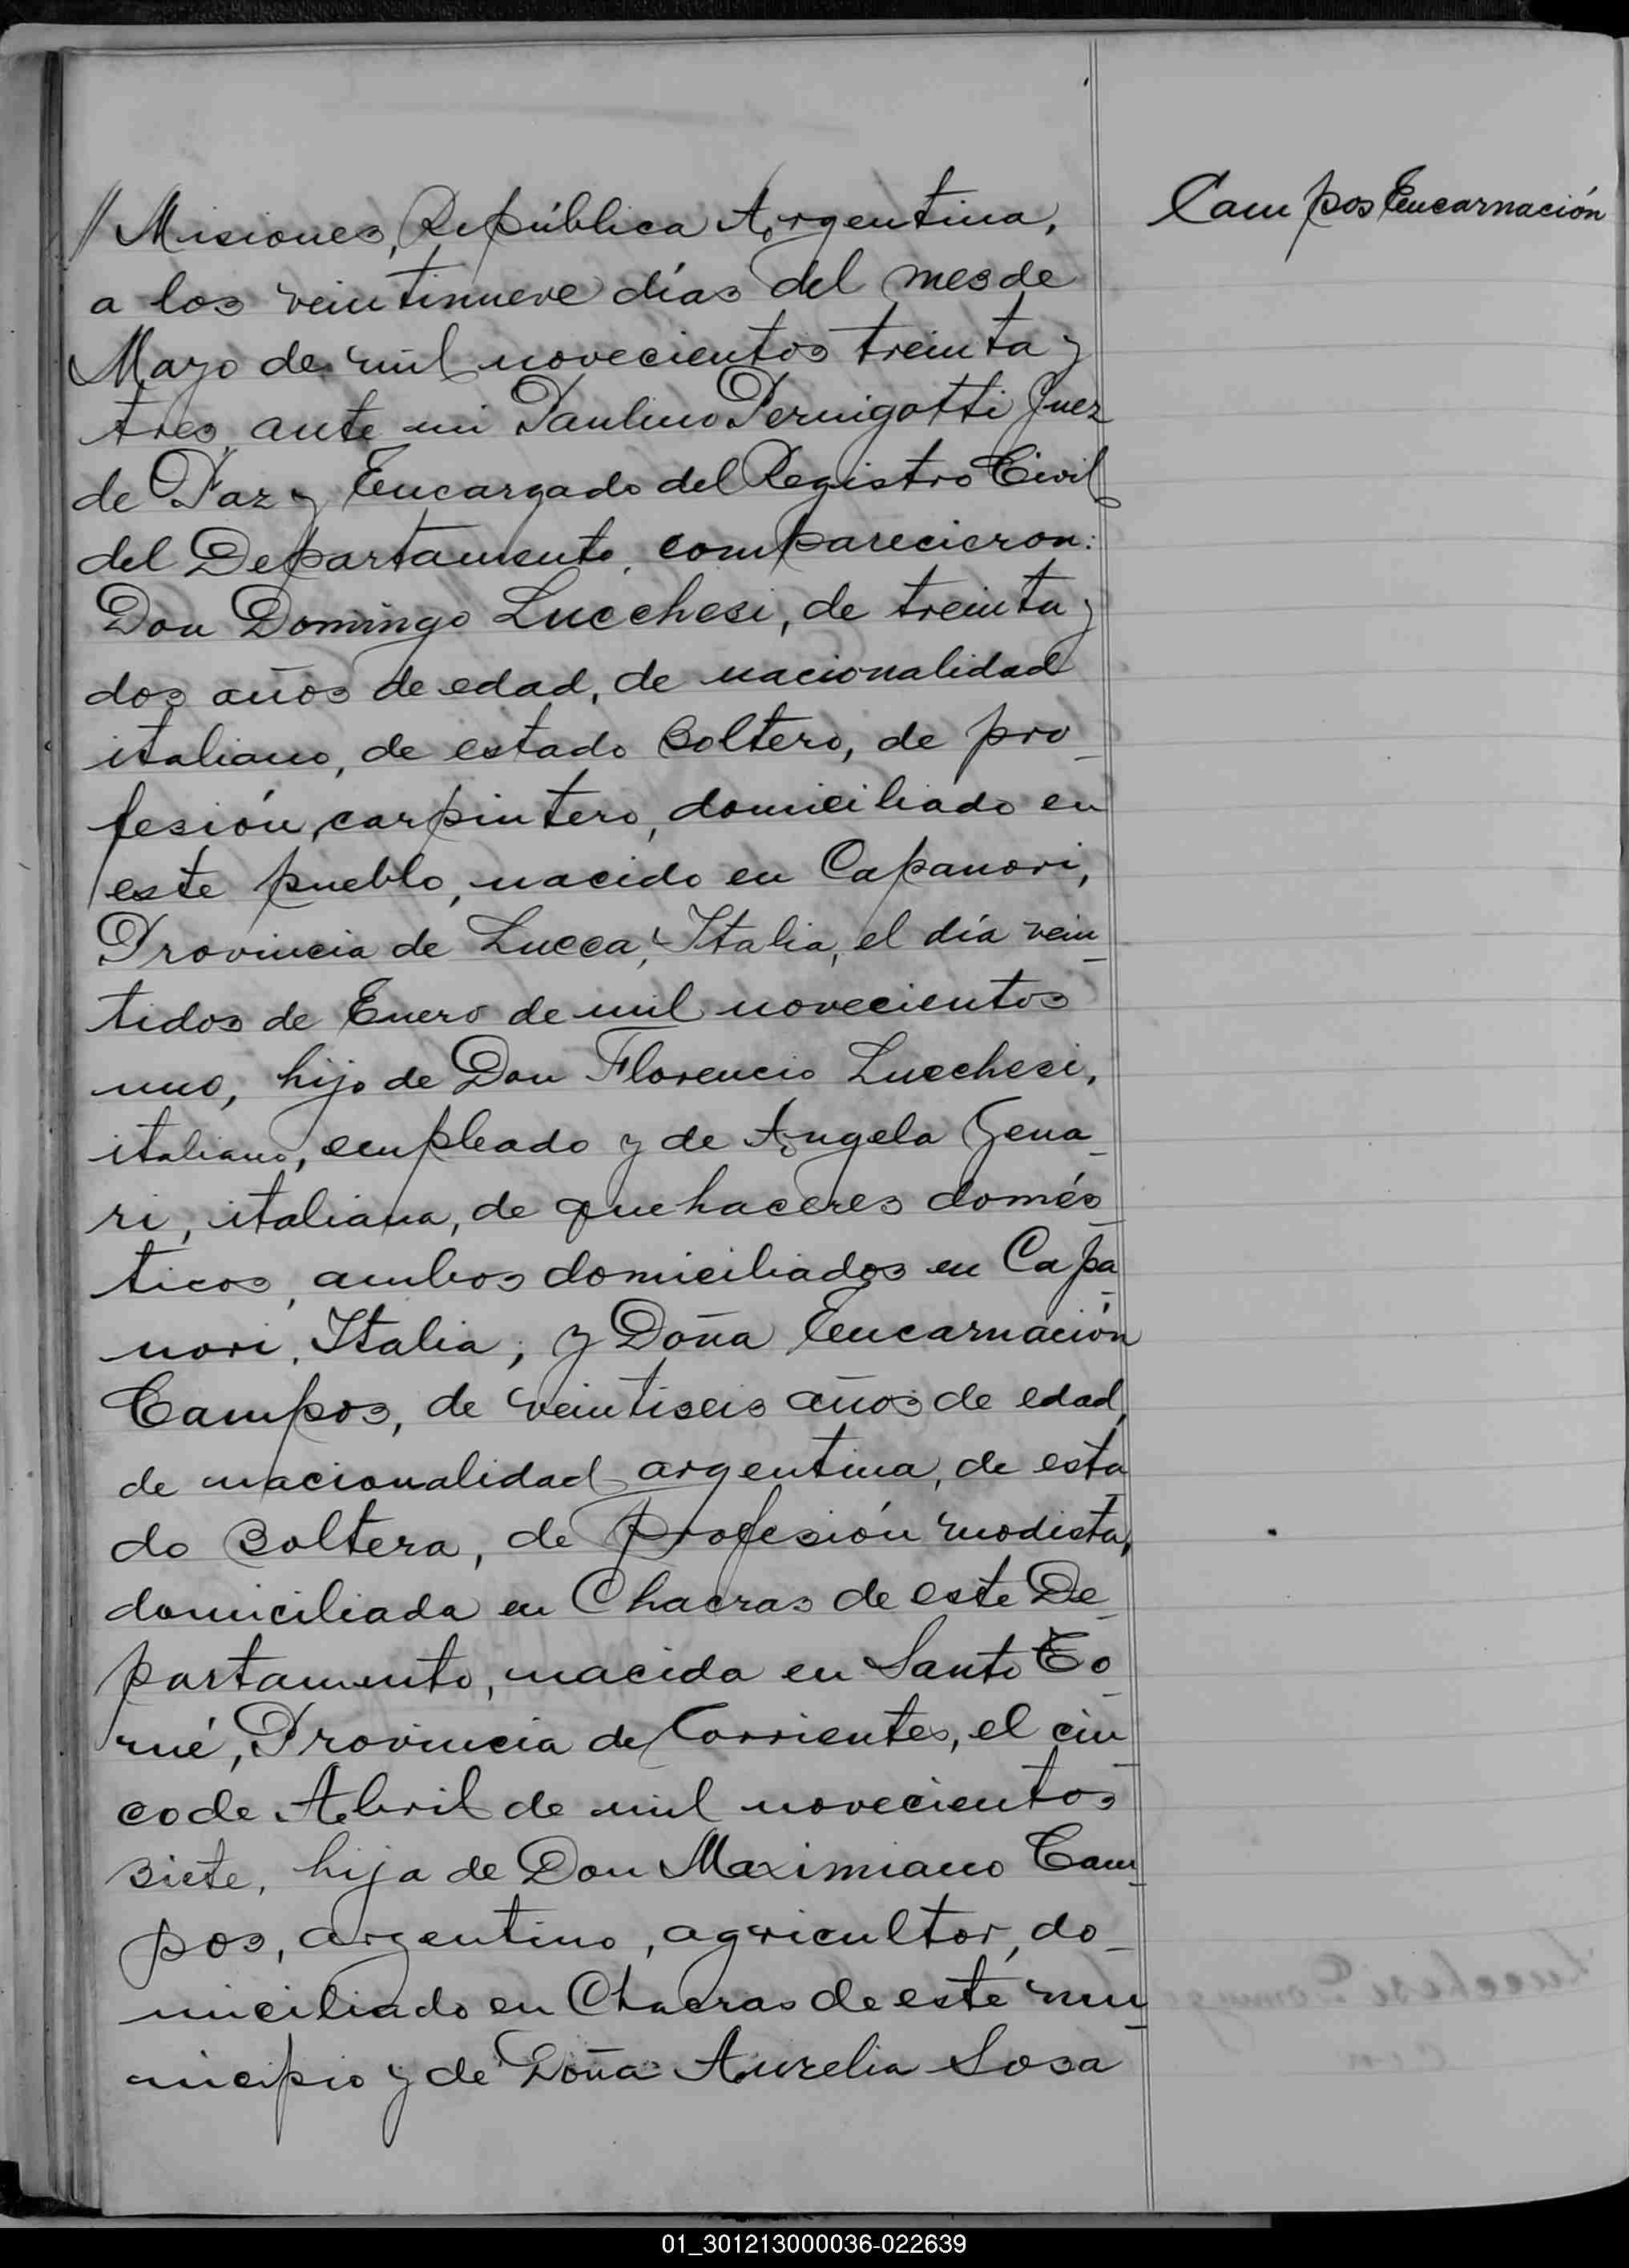 Campos Encarnación
// Misiones, República Argentina,
a los veintinueve días del mes de
Mayo de mil novecientos treinta y
tres, ante mi Paulino Pernigotti Juez
de Paz y Encargado del Registro Civil
del Departamento, comparecieron:
Don Domingo Lucchesi, de treinta y
dos años de edad, de nacionalidad
italiano, de estado soltero, de pro_
fesión, carpintero, domiciliado en
este pueblo, nacido en Capanori,
Provincia de Lucca, Italia, el día vein_
tidos de Enero de mil novecientos
uno, hijo de Don Florencio Lucchesi,
italiano, empleado y de Angela Gena_
ri, italiana, de quehaceres domés_
ticos, ambos domiciliados en Capa_
nori, Italia; y Doña Encarnación
Campos, de veintiseis años de edad,
de nacionalidad argentina, de esta_
do soltera, de profesión modista,
domiciliada en Chacras de este De_
partamento, nacida en Santo To_
mé, Provincia de Corrientes, el cin_
co de Abril de mil novecientos
siete, hija de Don Maximiano Cam_
pos, argentino, agricultor, do_
miciliado en Chacras de este mu_
nicipio y de Doña Aurelia Sosa
01_301213000036-022639